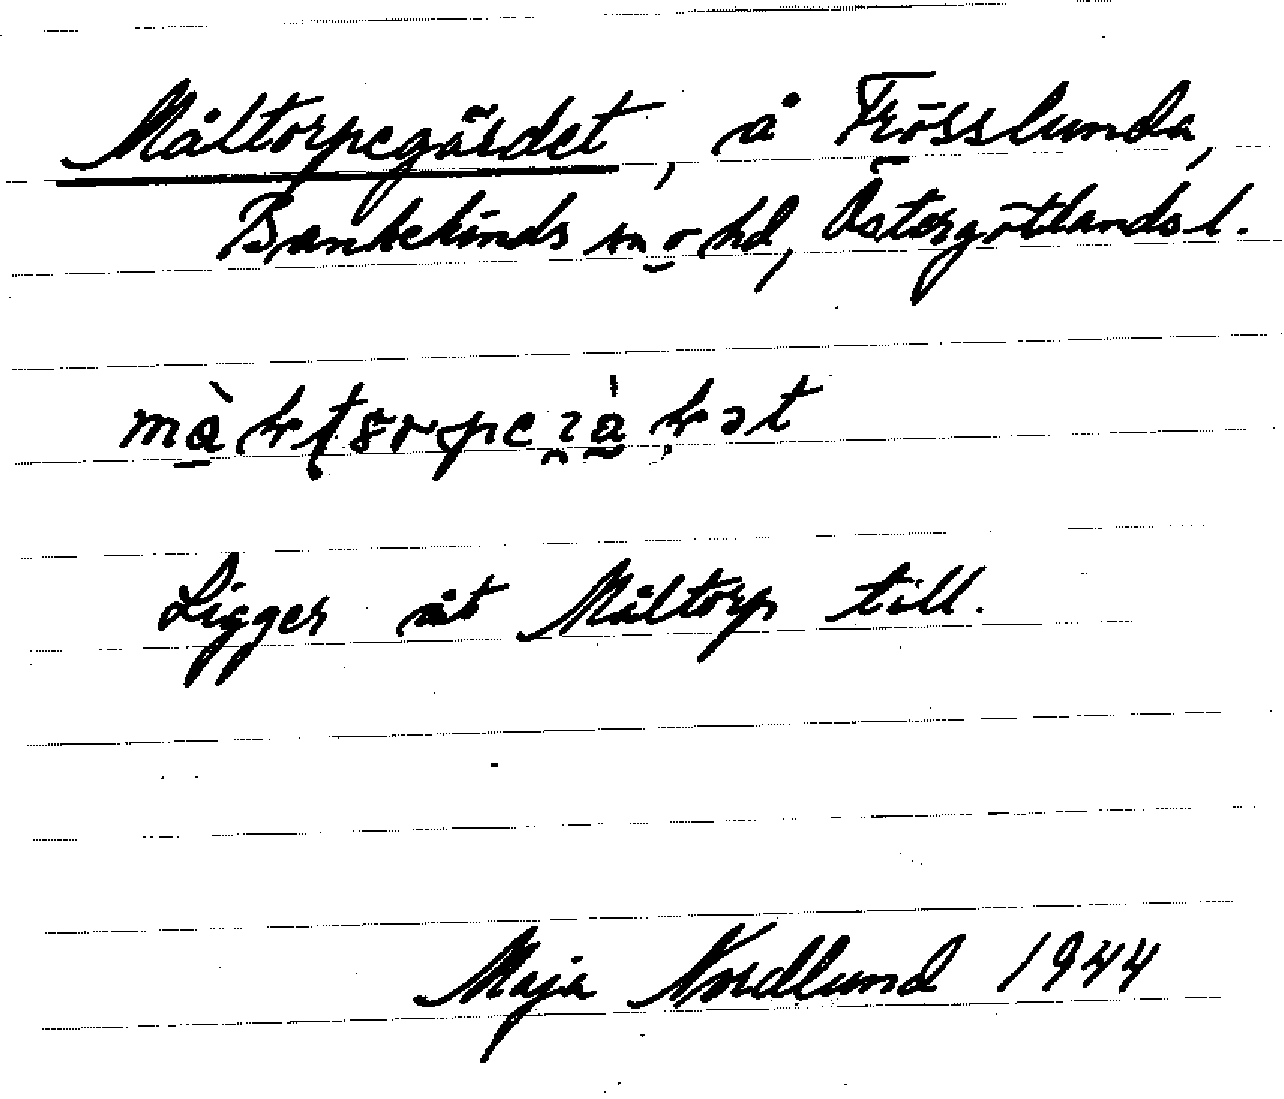 Måltorpegärdet, å Frösslunda,
Bankekinds sn o hd, Östergötlands l.
Ligger åt Måltorp till.
Maja Nordlund 1944